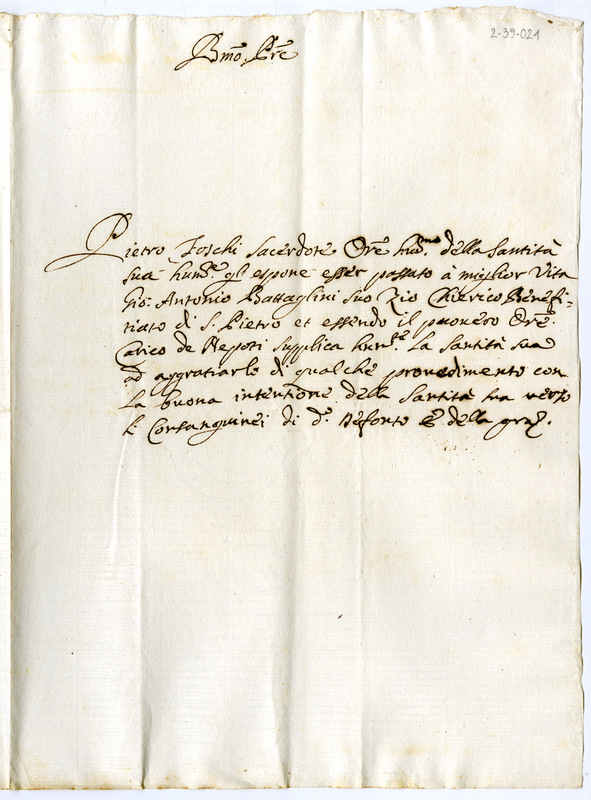 2-39-021
Bmo. Pre
Pietro Foschi Sacerdote Ore humo. della Santità
sua humte. gli espone esser passato à miglior vita
Gio: Antonio Battaglini suo Zio Chierico Benefi-
tiato di S. Pietro et essendo il povero Ore.
Carico de Nepoti supplica humte. La Santità sua
ad aggratiarlo di qualche provedimento con
la buona intentione della Santità sua verso
li Consanguinei di do. Defonto Et della graz.